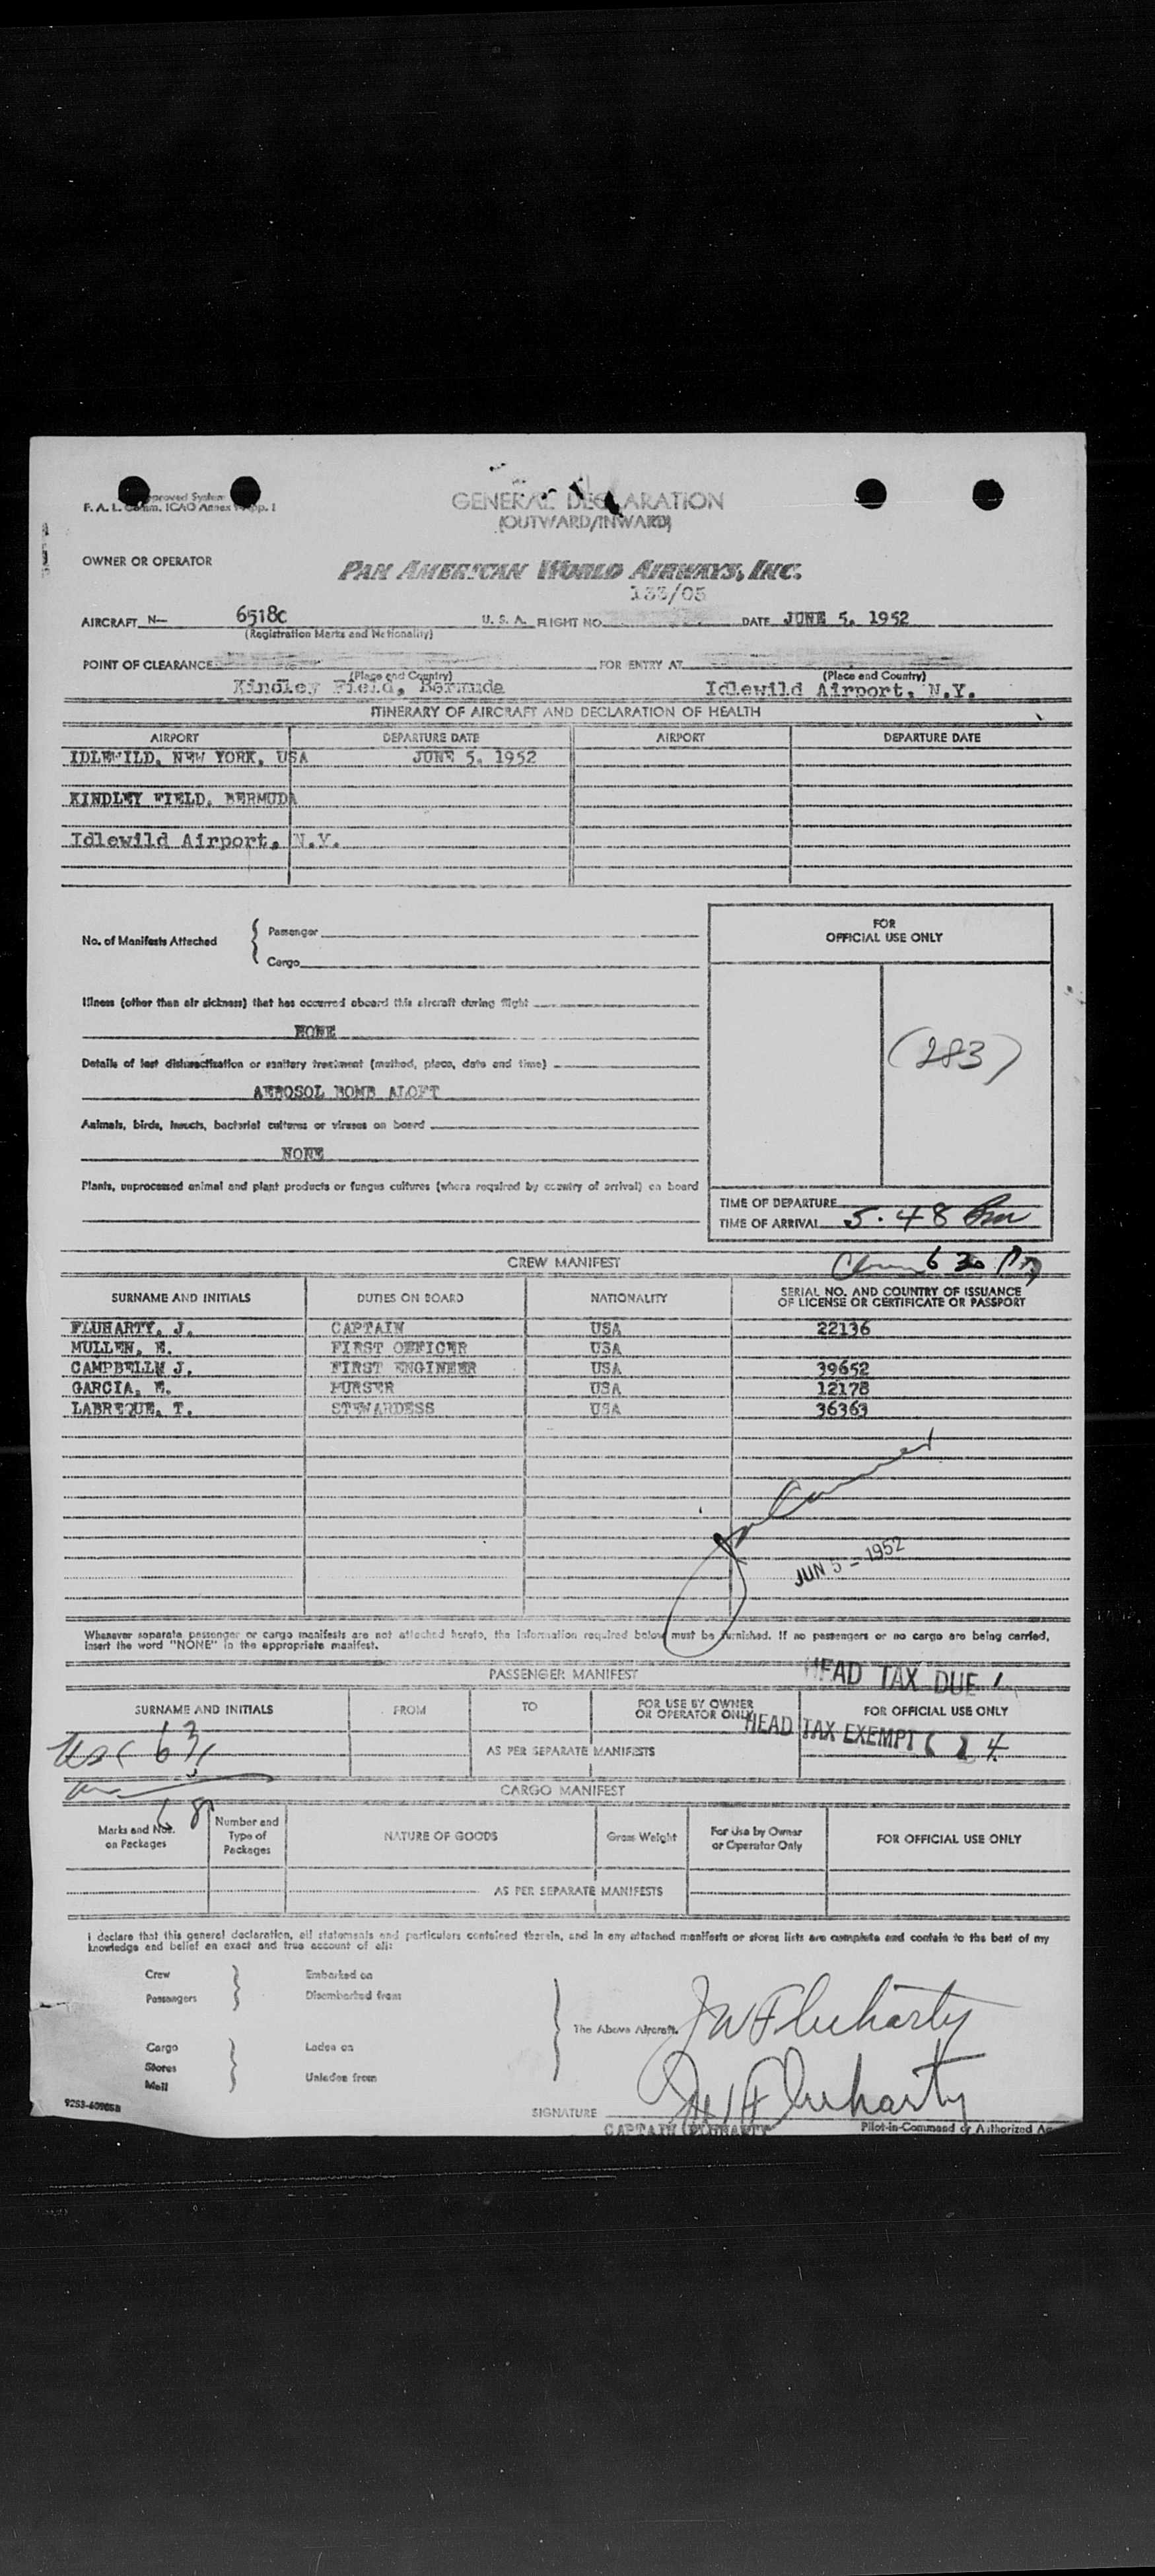 Approved System
F. A. L. Comm. ICAO Annex App. 1
GENERAL DECLARATION
(OUTWARD/INWARD)
OWNER OR OPERATOR
PAN AMERICAN WORLD AIRWAYS, INC.
133/05
AIRCRAFT N— 6518C U. S. A. FLIGHT NO. DATE JUNE 5, 1952
(Registration Marks and Nationality)
POINT OF CLEARANCE FOR ENTRY AT
(Place and Country) (Place and Country)
Kindley Field, Bermuda Idlewild Airport, N.Y.
ITINERARY OF AIRCRAFT AND DECLARATION OF HEALTH
AIRPORT DEPARTURE DATE AIRPORT DEPARTURE DATE
IDLEWILD, NEW YORK, USA JUNE 5, 1952
KINDLEY FIELD, BERMUDA
Idlewild Airport, N.Y.
FOR
OFFICIAL USE ONLY
No. of Manifests Attached { Passenger
Cargo
Illness (other than air sickness) that has occurred aboard this aircraft during flight
NONE
(283)
Details of last disinsectization or sanitary treatment (method, place, date and time)
AEROSOL BOMB ALOFT
Animals, birds, insects, bacterial cultures or viruses on board
NONE
Plants, unprocessed animal and plant products or fungus cultures (where required by country of arrival) on board
TIME OF DEPARTURE
TIME OF ARRIVAL 5.48 Pm
6 30 Pm
CREW MANIFEST
SURNAME AND INITIALS DUTIES ON BOARD NATIONALITY SERIAL NO. AND COUNTRY OF ISSUANCE
OF LICENSE OR CERTIFICATE OR PASSPORT
FLUHARTY, J. CAPTAIN USA 22136
MULLEN, E. FIRST OFFICER USA
CAMPBELLM J. FIRST ENGINEER USA 39652
GARCIA, E. PURSER USA 12178
LABREQUE, T. STEWARDESS USA 36363
JUN 5 - 1952
Whenever separate passenger or cargo manifests are not attached hereto, the information required below must be furnished. If no passengers or no cargo are being carried,
insert the word "NONE" in the appropriate manifest.
PASSENGER MANIFEST
HEAD TAX DUE 1
SURNAME AND INITIALS FROM TO FOR USE BY OWNER
OR OPERATOR ONLY FOR OFFICIAL USE ONLY
HEAD TAX EXEMPT
USC 63
AS PER SEPARATE MANIFESTS
CARGO MANIFEST
68
Marks and Nos.
on Packages Number and
Type of
Packages NATURE OF GOODS Gross Weight For Use by Owner
or Operator Only FOR OFFICIAL USE ONLY
AS PER SEPARATE MANIFESTS
I declare that this general declaration, all statements and particulars contained therein, and in any attached manifests or stores lists are complete and contain to the best of my
knowledge and belief an exact and true account of all:
Crew } Embarked on
Passengers Disembarked from
Cargo } Laden on
Stores
Mail Unladen from
} The Above Aircraft.
JWFluharty
JWFluharty
9253-60905B
SIGNATURE
CAPTAIN FLUHARTY Pilot-in-Command or Authorized Ag